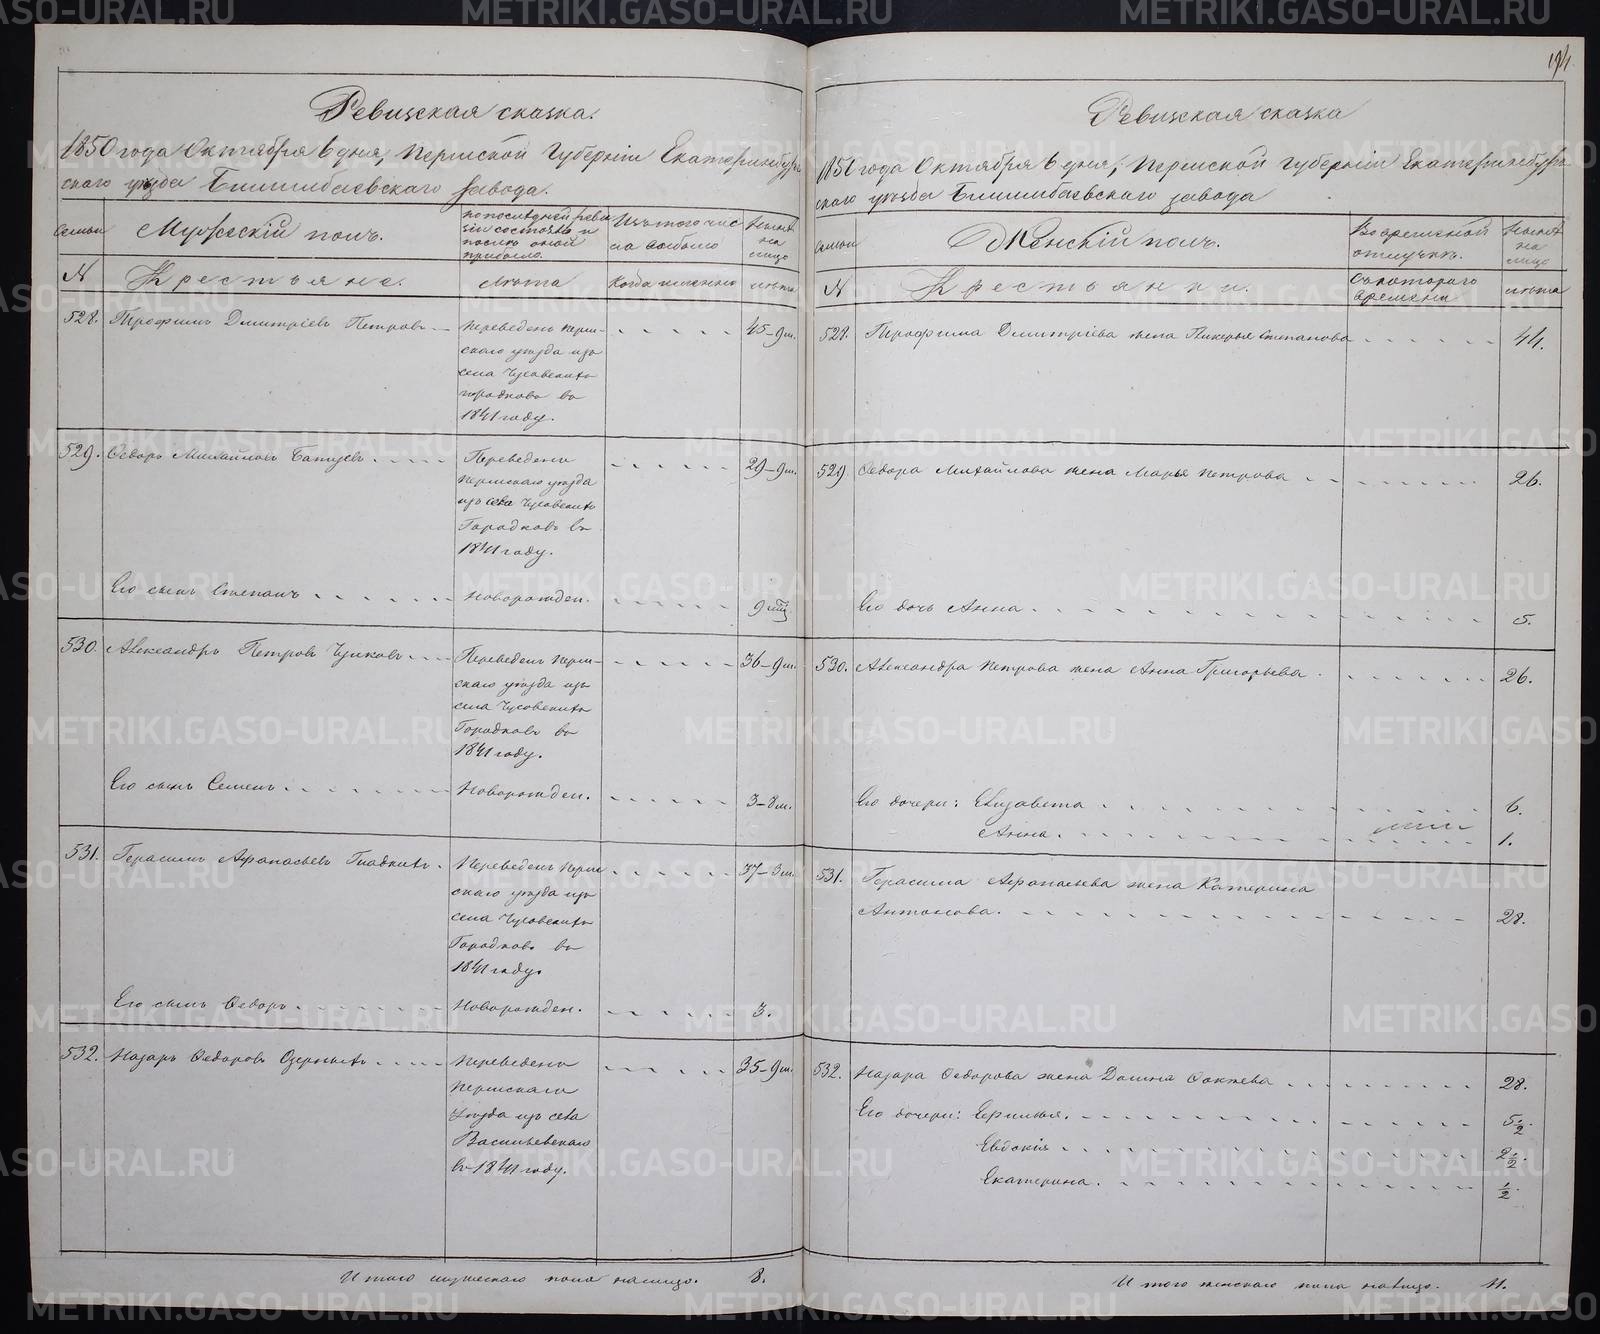 Ревизская сказка.
1850 года Октября 6 дня, Пермской Губерніи Екатеринбург-
скаго уѣзда Билимбаевскаго завода.
семьи
Мужескій полъ.
по последней реви
зіи состояло и
после оной
прибыло.
Изъ того чис
ла выбыло
Нынѣ
на
лицо
N
Крестьяне.
лѣта
Когда именно
лѣта
528.
Трофимъ Дмитріевъ Петровъ
Переведенъ Перм-
скаго уѣзда изъ
села Чусовскихъ
городковъ въ
1841 году.
45-9 м.
529.
Ѳедоръ Михайловъ
Переведенъ
Пермскаго уѣзда
изъ села Чусовскихъ
Городковъ въ
1841 году.
29-9 м.
Его сынъ Степанъ
Новорожден.
9
530.
Александръ Петровъ Чулковъ
Переведенъ Перм-
скаго уѣзда изъ
села Чусовскихъ
Городковъ въ
1841 году.
36-9 м.
Его сынъ Семенъ
Новорожден.
3-8 м.
531.
Герасимъ Афанасьевъ Гладкихъ
Переведенъ Перм
скаго уѣзда изъ
села Чусовскихъ
Городковъ въ
1841 году.
37-3 м.
Его сынъ Ѳедоръ
Новорожден.
3.
532.
Назаръ Ѳедоровъ Озерныхъ
Переведенъ
Пермскаго
Уѣзда изъ села
Васильевскаго
въ 1841 году.
35-9 м.
Итого мужескаго пола налицо. 8.
194
Ревизская сказка
1850 года Октября 6 дня, Пермской Губерніи Екатеринбург-
скаго уѣзда Билимбаевскаго завода
семьи
Женскій полъ.
Во временной
отлучкѣ.
Нынѣ
на
лицо
N
Крестьянки.
Съ котораго
времени
лѣта
528.
Трофима Дмитріева жена Гликерья Степанова
44.
529.
Ѳедора Михайлова жена Марья Петрова
26.
Его дочь Анна
5.
530.
Александра Петрова жена Анна Григорьева
26.
Его дочери: Елизавета
6.
Анна.
1.
531.
Герасима Афанасьева жена Катерина
Антонова.
28.
532.
Назара Ѳедорова жена Домна
28.
Его дочери:
5 1/2
Евдокія
2 1/2.
Екатерина.
1/2
Итого женскаго пола налицо. 11.
METRIKI.GASO-URAL.RU